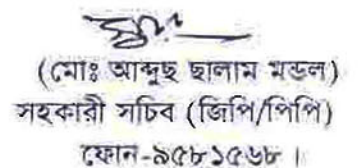 (মোঃ আব্দুছ ছালাম মন্ডল)
সহকারী সচিব (জিপি/পিপি)
ফোন-৯৫৮১৫৬৮।